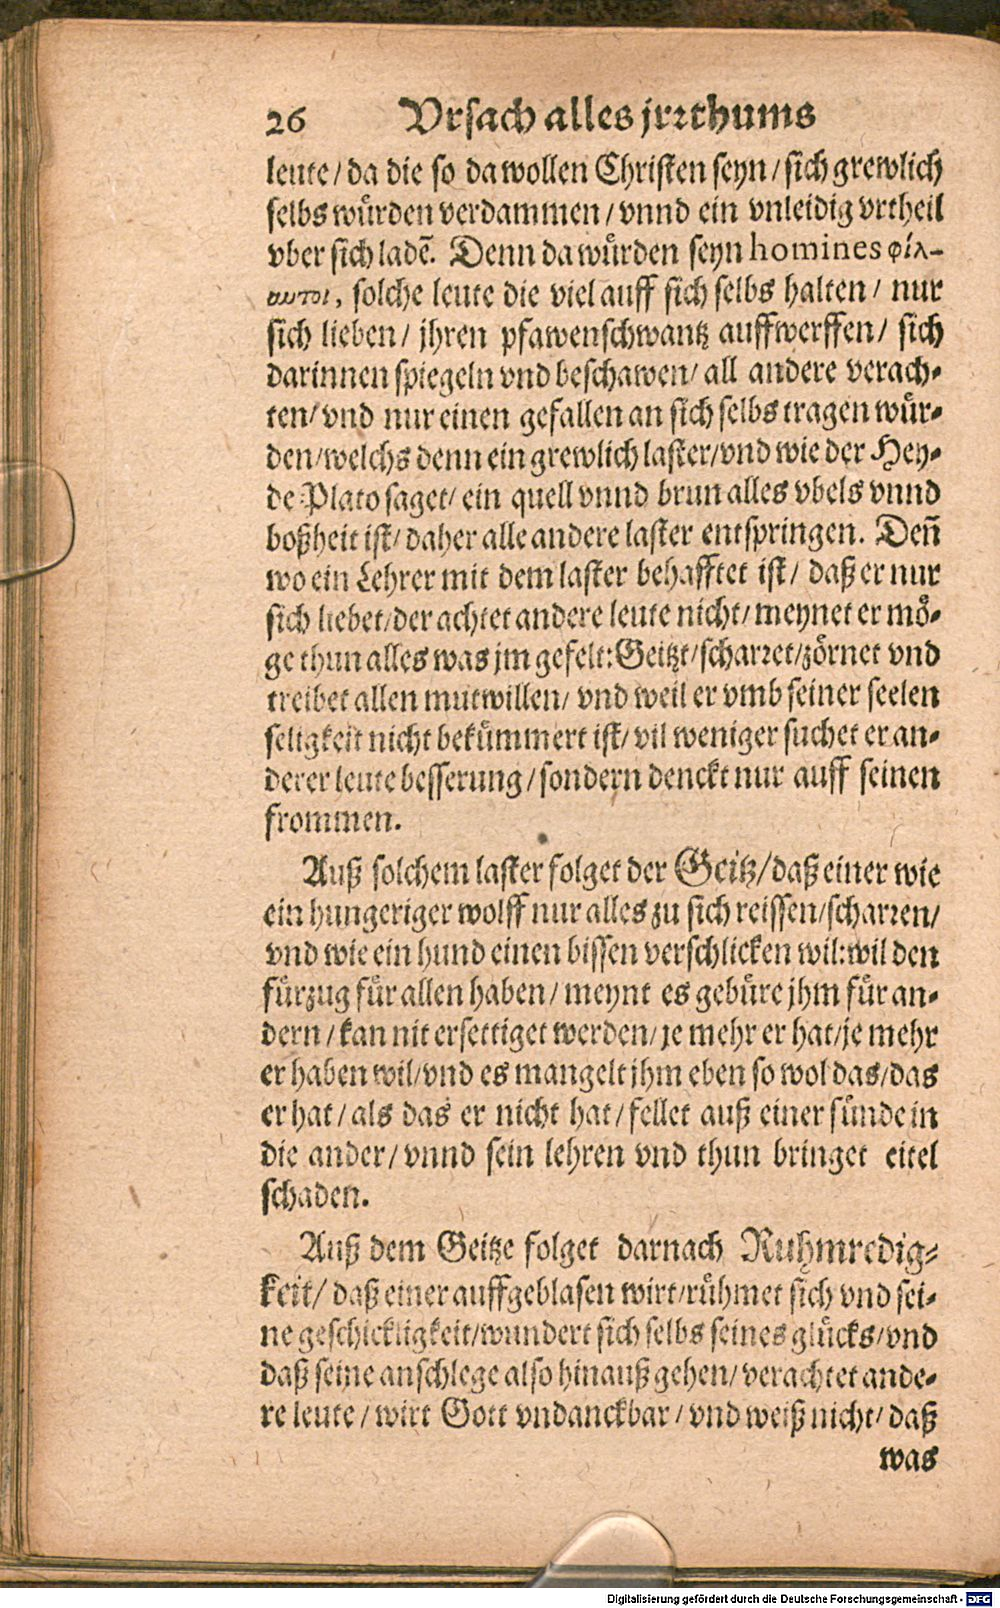 26 Vrsach alles jrrthums
leute/ da die so da wollen Christen seyn/ sich grewlich
selbs würden verdammen/ vnnd ein vnleidig vrtheil
vber sich ladẽ. Denn da würden seyn homines φίλ-
αυτοι, solche leute die viel auff sich selbs halten/ nur
sich lieben/ jhren pfawenschwantz auffwerffen/ sich
darinnen spiegeln vnd beschawen/ all andere verach-
ten/ vnd nur einen gefallen an sich selbs tragen wür-
den/ welchs denn ein grewlich laster/ vnd wie der Hey-
de Plato saget/ ein quell vnnd brun alles vbels vnnd
boßheit ist/ daher alle andere laster entspringen. Deñ
wo ein Lehrer mit dem laster behafftet ist/ daß er nur
sich liebet/ der achtet andere leute nicht/ meynet er mö-
ge thun alles was jm gefelt: Geitzt/ scharret/ zörnet vnd
treibet allen mutwillen/ vnd weil er vmb seiner seelen
seligkeit nicht bekümmert ist/ vil weniger suchet er an-
derer leute besserung/ sondern denckt nur auff seinen
frommen.
Auß solchem laster folget der Geitz/ daß einer wie
ein hungeriger wolff nur alles zu sich reissen/ scharren/
vnd wie ein hund einen bissen verschlicken wil: wil den
fürzug für allen haben/ meynt es gebüre jhm für an-
dern/ kan nit ersettiget werden/ je mehr er hat/ je mehr
er haben wil/ vnd es mangelt jhm eben so wol das/ das
er hat/ als das er nicht hat/ fellet auß einer sünde in
die ander/ vnnd sein lehren vnd thun bringet eitel
schaden.
Auß dem Geitze folget darnach Ruhmredig-
keit/ daß einer auffgeblasen wirt/ rühmet sich vnd sei-
ne geschickligkeit/ wundert sich selbs seines glücks/ vnd
daß seine anschlege also hinauß gehen/ verachtet ande-
re leute/ wirt Gott vndanckbar/ vnd weiß nicht/ daß
was
Digitalisierung gefördert durch die Deutsche Forschungsgemeinschaft - DFG